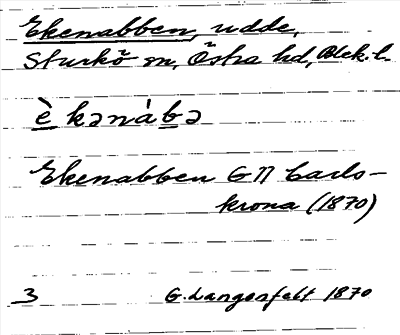 Ekenabben, udde,
Sturkö sn, Östra hd, Blek. l.
è kənàbə
Ekenabben G11 Carls-
krona (1870)
3 G. Langenfelt 1870